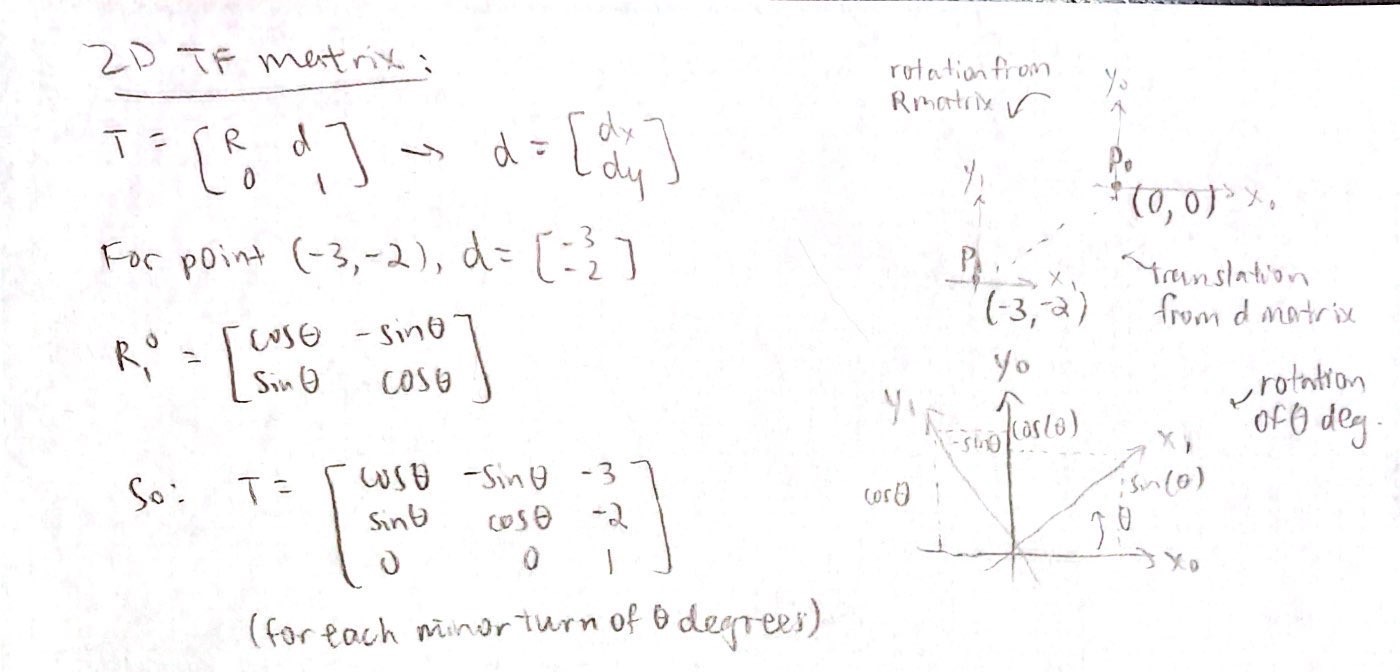 2D TF matrix:
T = [R d
0 1] → d = [dx
dy]
For point (-3,-2), d = [-3
-2]
R₁⁰ = [cosθ -sinθ
sinθ cosθ]
So: T = [cosθ -sinθ -3
sinθ cosθ -2
0 0 1]
(for each minor turn of θ degrees)
rotation from
R matrix
y₀
P₀
(0,0) x₀
y₁
P₁
x₁
(-3,-2)
translation
from d matrix
y₀
y₁
-sinθ cos(θ)
x₁
cosθ
sin(θ)
θ
x₀
rotation
of θ deg.